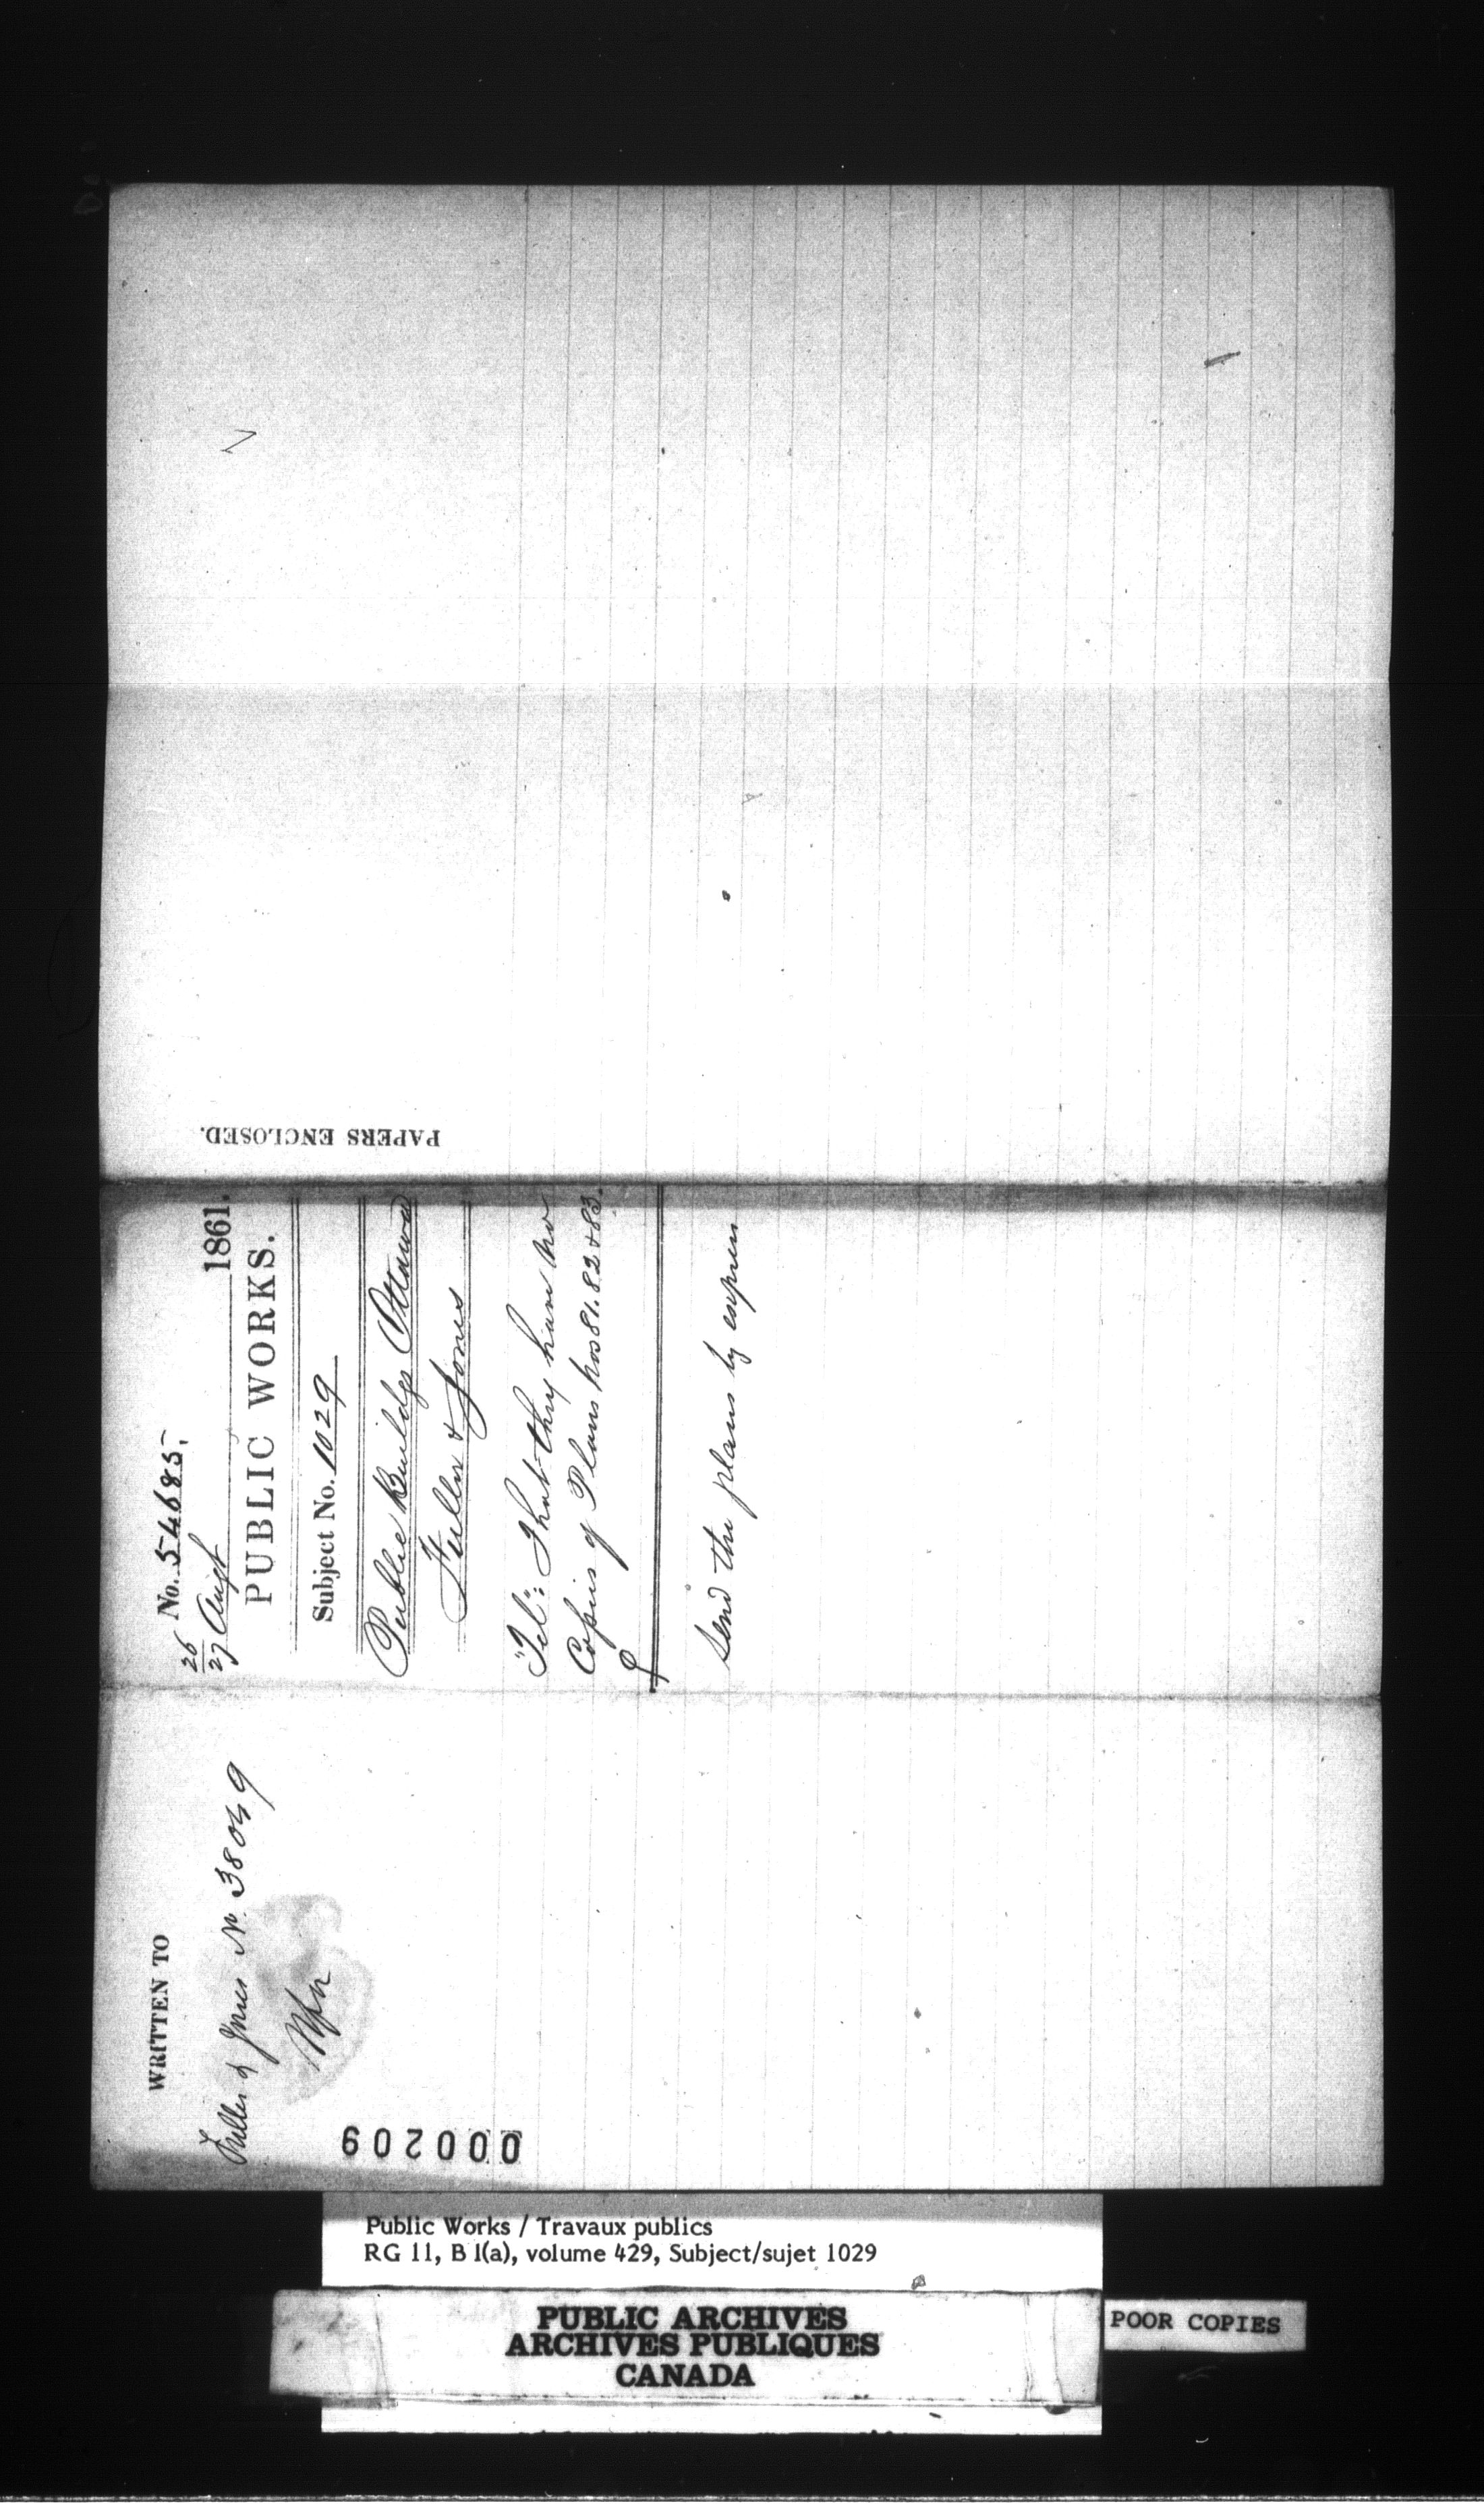 PAPERS ENCLOSED.
No. 54685.
26/27 Augt 1861.
PUBLIC WORKS.
Subject No. 1029
Public Buildgs Ottawa
Fuller & Jones
"Tel": That they have no
Copies of Plans Nos 81.82 & 83.
Send the plans by express
WRITTEN TO
Fuller & Jones No. 38049
000209
Public Works / Travaux publics
RG 11, B 1(a), volume 429, Subject/sujet 1029
PUBLIC ARCHIVES
ARCHIVES PUBLIQUES
CANADA
POOR COPIES